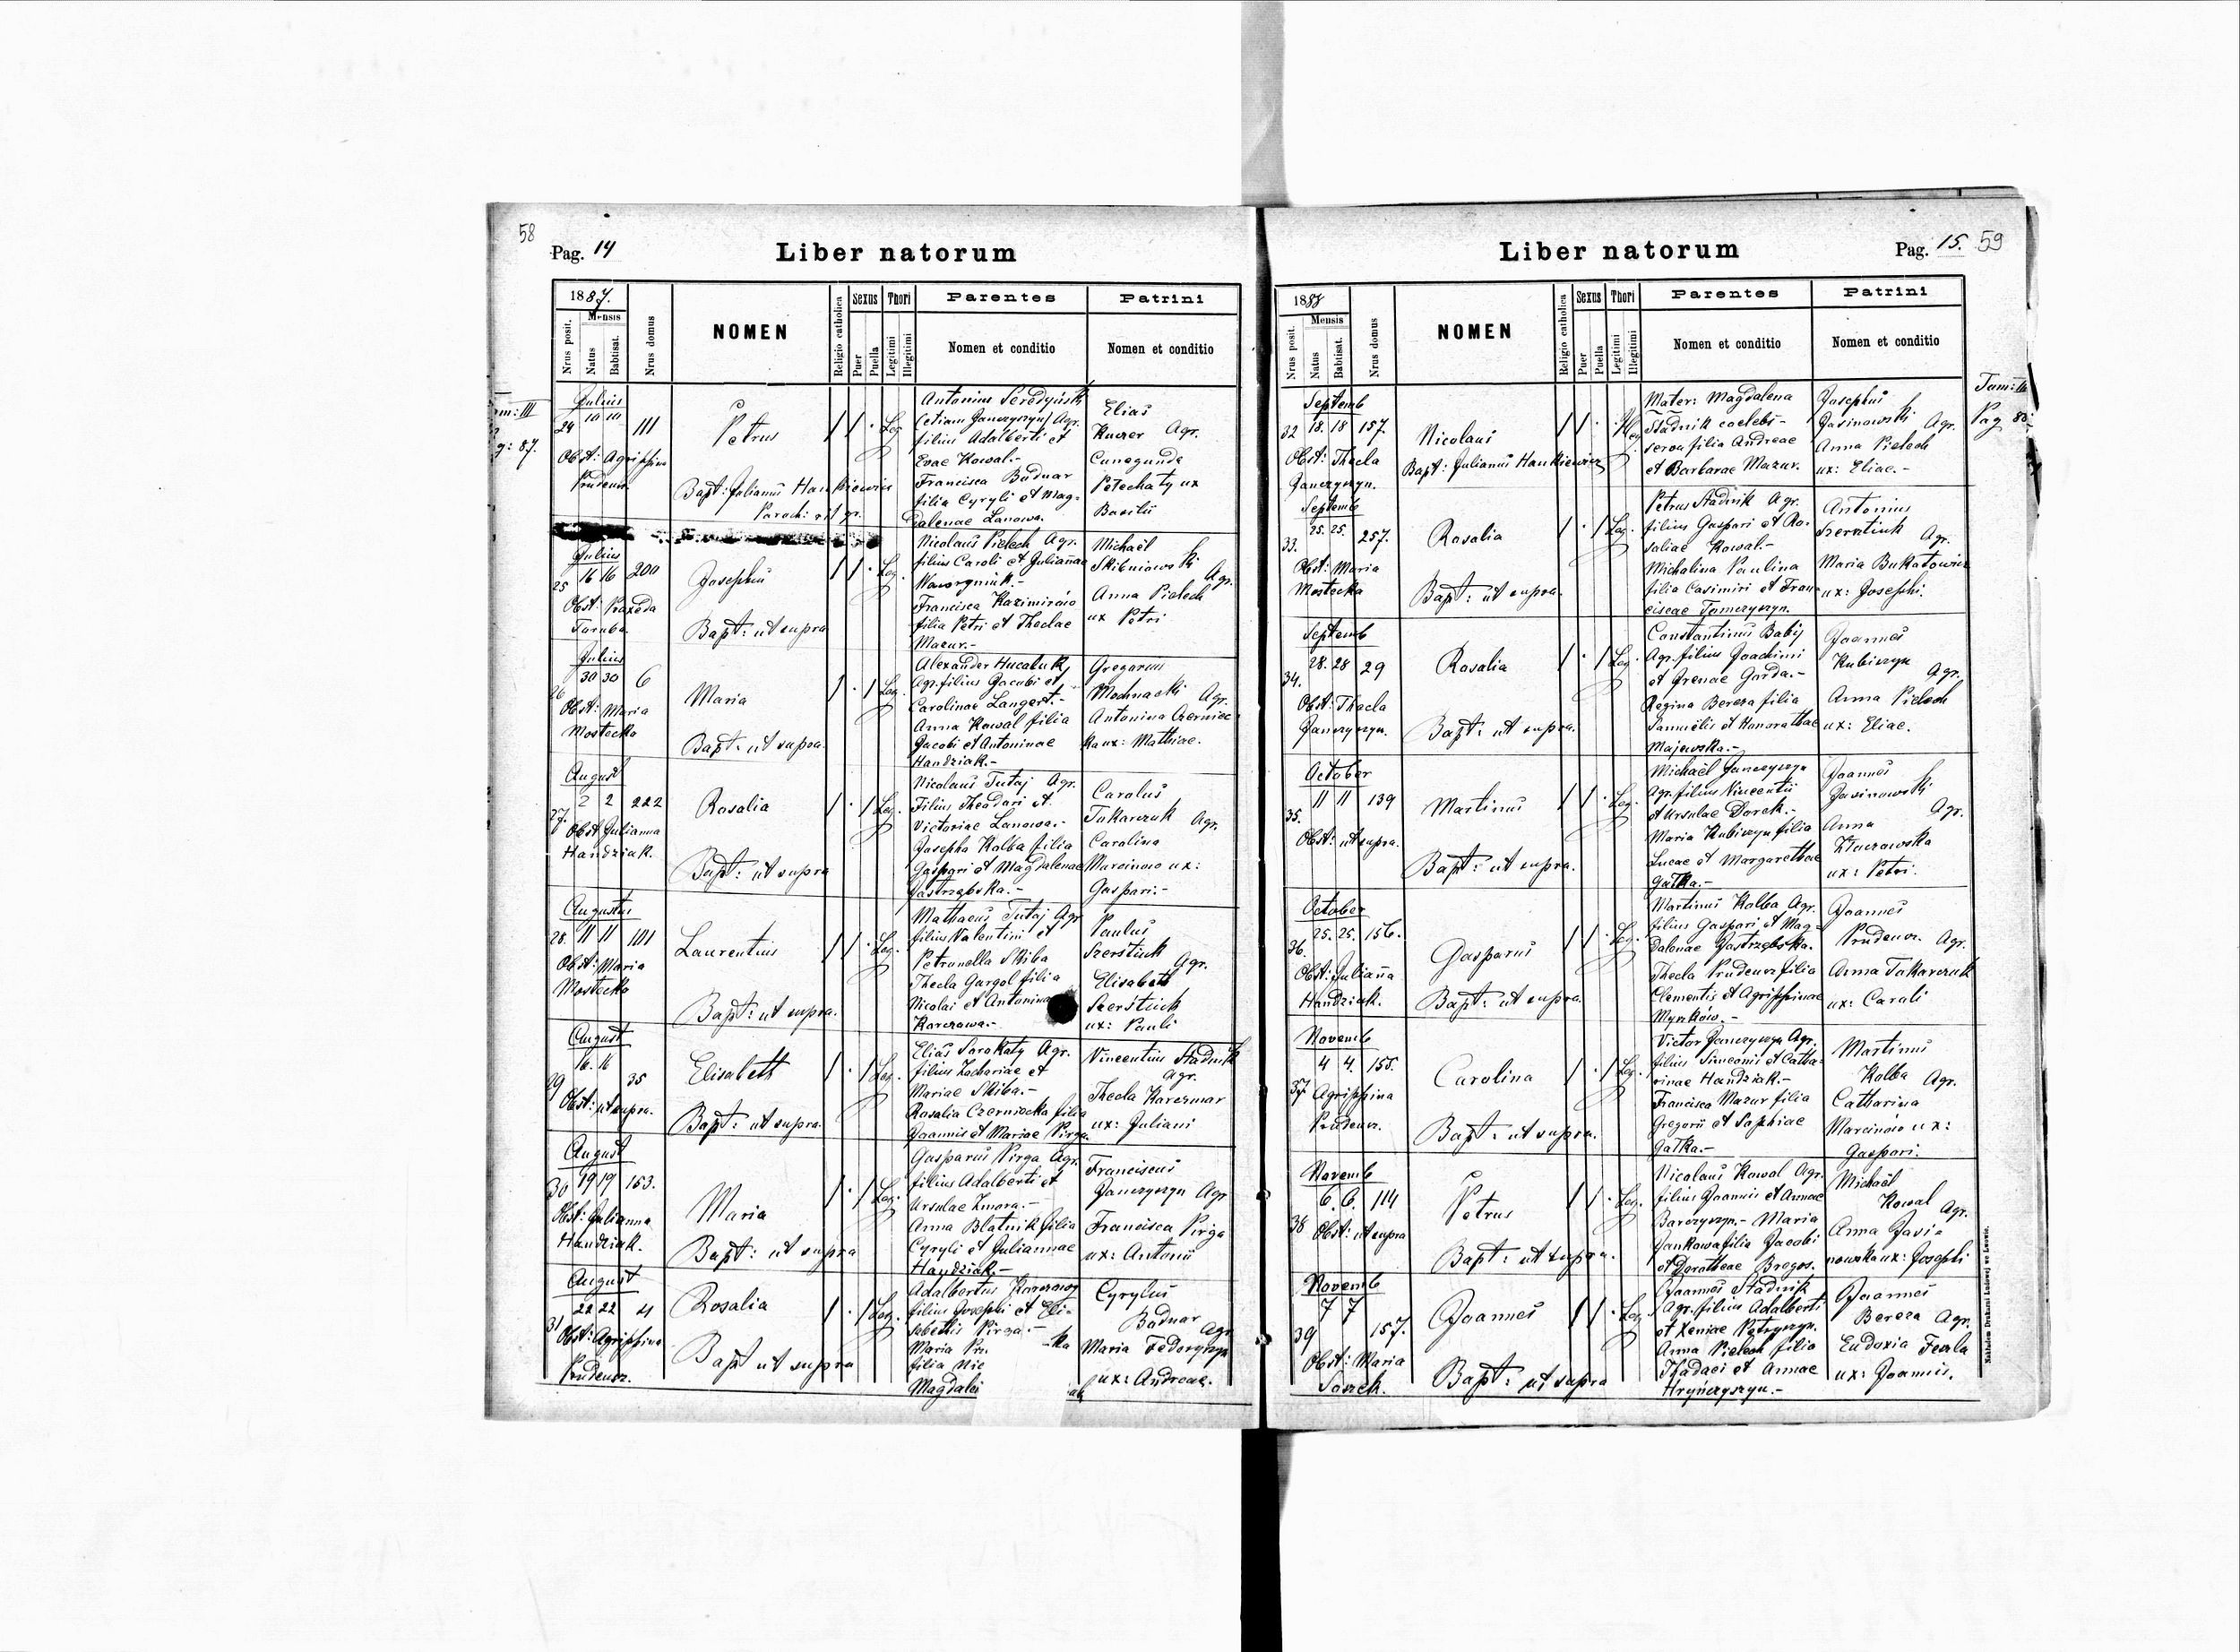 58
Pag. 14
Liber natorum
1887.
Mensis
Nrus posit.
Natus
Babtisat.
Nrus domus
NOMEN
Religio catholica
Sexus
Puer
Puella
Thori
Legitimi
Illegitimi
Parentes
Nomen et conditio
Patrini
Nomen et conditio
m: III
g: 87.
Julius
24 10 10 111
Obst: Agrippina
Prudeus.
Petrus
Bapt: Julianus Hankiewicz
Paroch: rit gr.
Leg.
Antonius Seredyński
(etiam Janczyszyn) Agr.
filius Adalberti et
Evae Kowal.-
Francisca Badnar
filia Cyryli et Mag=
dalenae Lanowa.
Elias
Kuczer Agr.
Cunegunda
Petechaty ux
Basilii
Julius
25 16 16 200
Obst: Praxeda
Taraba.
Josephus
Bapt: ut supra
Leg.
Nicolaus Pielech Agr.
filius Caroli et Julianae
Wawryniuk.-
Francisca Kazimirów
filia Petri et Theclae
Mazur.-
Michaël
Skibniowski
Agr.
Anna Pielech
ux Petri
Julius
26 30 30 6
Obst: Maria
Mostecka
Maria
Bapt: ut supra.
Leg.
Alexander Hucaluk
Agr. filius Jacobi et
Carolinae Langert.-
Anna Kowal filia
Jacobi et Antoninae
Handziak.-
Gregorius
Mochnacki Agr.
Antonina Czerniec=
ka ux: Mathiae.
August
27 2 2 222
Obst: Julianna
Handziak.
Rosalia
Bapt: ut supra
Leg.
Nicolaus Tutaj Agr.
Filius Theodori et
Victoriae Lanowa.-
Josepha Kolba filia
Gaspari et Magdalenae
Jastrzębska.-
Carolus
Tokarczuk Agr.
Carolina
Marcinow ux:
Gaspari.-
Augustus
28. 11 11 101
Obst: Maria
Mostecka
Laurentius
Bapt: ut supra.
Leg.
Mathaeus Tutaj Agr
filius Valentini et
Petronella Skiba
Thecla Gargol filia
Nicolai et Antoninae
Karczowa.-
Paulus
Szerstiuk
Agr.
Elisabeth
Szerstiuk
ux: Pauli
August
29 16. 16 35
Obst: ut supra.
Elisabeth
Bapt: ut supra.
Leg.
Elias Sorokaty Agr.
filius Zachariae et
Mariae Skiba.-
Rosalia Czerniecka filia
Joannis et Mariae Pirga.
Vincentius Stadnik
Agr.
Thecla Karczmar
ux: Juliani
August
30 19 19 153.
Obst: Julianna
Handziak.
Maria
Bapt: ut supra
Leg.
Gasparus Pirga Agr.
filius Adalberti et
Ursulae Zmora.-
Anna Blatnik filia
Cyryli et Juliannae
Handziak.-
Franciscus
Janczyszyn Agr
Francisca Pirga
ux: Antonii
August
31 22 22 4
Obst: Agrippina
Prudeus.
Rosalia
Bapt ut supra
Leg.
Adalbertus
filius Josephi et Eli=
sabethis Pirga.-
Maria
filia Nic
Cyrylus
Badnar
Agr
Maria Fedoryszyn
ux: Andreae.
Liber natorum
Pag. 15. 59
1887
Mensis
Nrus posit.
Natus
Babtisat.
Nrus domus
NOMEN
Religio catholica
Sexus
Puer
Puella
Thori
Legitimi
Illegitimi
Parentes
Nomen et conditio
Patrini
Nomen et conditio
Tom: III
Pag 80:
Septemb
32 18. 18 157.
Obst: Thecla
Janczyszyn.
Nicolaus
Bapt: Julianus Hankiewicz
Mater: Magdalena
Stadnik coelebs -
serva filia Andreae
et Barbarae Mazur.
Josephus
Jasinowski Agr.
Anna Pielech
ux: Eliae.-
Septemb
33. 25. 25. 257.
Obst: Maria
Mostecka
Rosalia
Bapt: ut supra.
Leg.
Petrus Stadnik Agr.
filius Gaspari et Ro=
saliae Kowal.-
Michalina Paulina
filia Casimiri et Fran=
ciscae Tomczyszyn.
Antonius
Szerstiuk
Agr.
Maria Bukatowicz
ux: Josephi.
Septemb
34. 28. 28 29
Obst: Thecla
Janczyszyn.
Rosalia
Bapt: ut supra.
Leg.
Constantinus Babij
Agr. filius Joachimi
et Irenae Garda.-
Regina Bereza filia
Samuëlis et Honorathae
Majewska.-
Joannes
Kubiszyn
Agr.
Anna Pielech
ux: Eliae.
October
35. 11 11 139
Obst: ut supra.
Martinus
Bapt: ut supra.
Leg.
Michaël Janczyszyn
Agr. filius Vincentii
et Ursulae Dorek.-
Maria Kubiszyn filia
Lucae et Margarethae
Gałka.-
Joannes
Jasinowski
Agr.
Anna
Złuczowska
ux: Petri.
October
36. 25. 25. 156.
Obst: Julianna
Handziak.
Gasparus
Bapt: ut supra.
Leg.
Martinus Kolba Agr.
filius Gaspari et Mag=
dalenae Jastrzębska.
Thecla Prudeus filia
Clementis et Agrippinae
Myszków.-
Joannes
Prudeus. Agr.
Anna Tokarczuk
ux: Caroli
Novemb
37 4 4. 155.
Agrippina
Prudeus.
Carolina
Bapt: ut supra.
Leg.
Victor Janczyszyn Agr.
filius Simeonis et Catha=
rinae Handziak.-
Francisca Mazur filia
Gregorii et Sophiae
Gałka.-
Martinus
Kolba Agr.
Catharina
Marcinów ux:
Gaspari.
Novemb
38 6. 6. 114
Obst: ut supra
Petrus
Bapt: ut supra.
Leg.
Nicolaus Kowal Agr.
filius Joannis et Annae
Barczyszyn.- Maria
Jankowa filia Jacobi
et Dorotheae Bregos.
Michaël
Kowal Agr.
Anna Jasi=
nowska ux: Josephi
Novemb
39 7 7 157.
Obst: Maria
Soszek.
Joannes
Bapt: ut supra
Leg.
Joannes Stadnik
Agr. filius Adalberti
et Xeniae Petryszyn.
Anna Pielech filia
Thadaei et Annae
Hryńczyszyn.-
Joannes
Bereza Agr.
Eudoxia Fesla
ux: Joannis.
Nakładem Drukarni Ludowej we Lwowie.